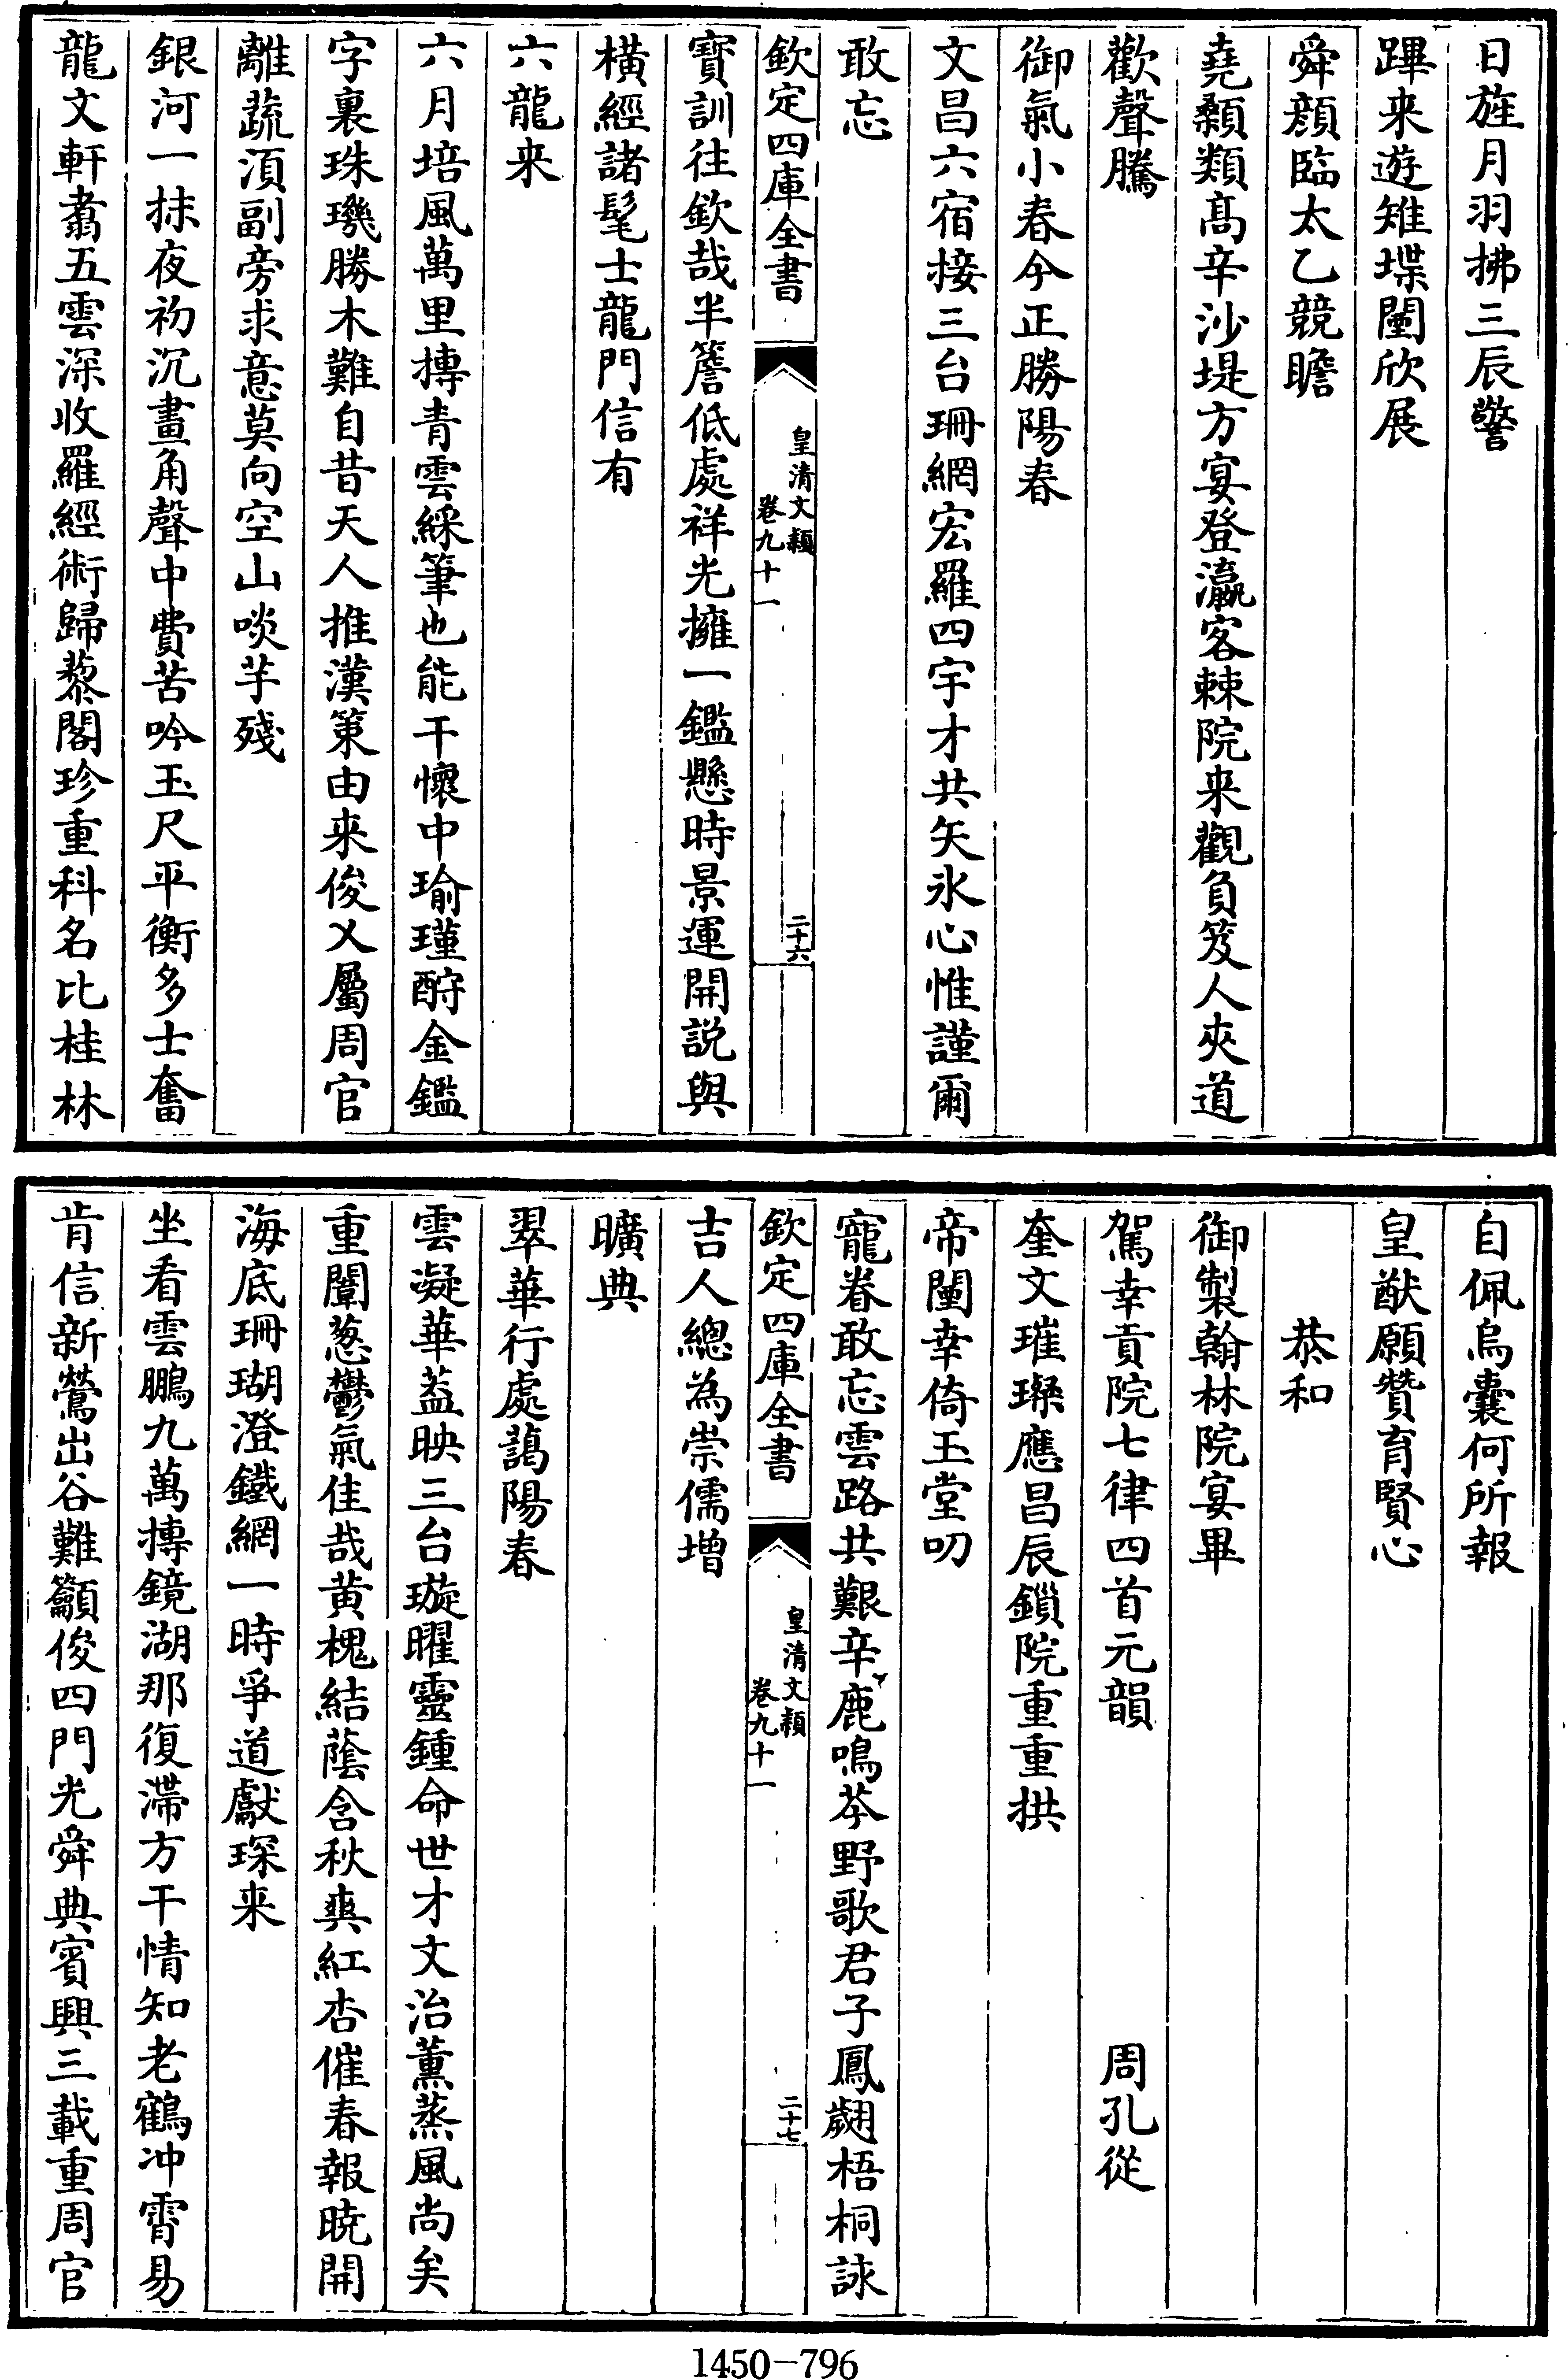 日旌月羽拂三辰警
蹕来遊雉堞闉欣展
舜顔臨太乙競瞻
堯顙類髙辛沙堤方宴登瀛客棘院来觀負笈人夾道
歡聲騰
御氣小春今正勝陽春
文昌六宿接三台珊網宏羅四宇才共矢氷心惟謹爾
敢忘
欽定四庫全書
皇清文穎
卷九十一
二十六
寳訓往欽哉半簷低處祥光擁一鑑懸時景運開説與
横經諸髦士龍門信有
六龍来
六月培風萬里摶青雲綵筆也能干懷中瑜瑾酧金鑑
字裏珠璣勝木難自昔天人推漢策由来俊乂屬周官
離蔬湏副旁求意莫向空山啖芋殘
銀河一抹夜初沉畫角聲中費苦吟玉尺平衡多士奮
龍文軒翥五雲深收羅經術歸藜閣珍重科名比桂林
自佩烏囊何所報
皇猷願贊育賢心
恭和
御製翰林院宴畢
駕幸貢院七律四首元韻
周孔從
奎文璀璨應昌辰鎖院重重拱
帝闉幸倚玉堂叨
寵眷敢忘雲路共艱辛鹿鳴芩野歌君子鳳翽梧桐詠
欽定四庫全書
皇清文穎
卷九十一
二十七
吉人總為崇儒増
曠典
翠華行處藹陽春
雲凝華葢映三台璇曜靈鍾命世才文治薫蒸風尚矣
重闈葱鬱氣佳哉黄槐結蔭含秋爽紅杏催春報暁開
海底珊瑚澄鐵網一時爭道獻琛来
坐看雲鵬九萬摶鏡湖那復滯方干情知老鶴冲霄易
肯信新鶯出谷難籲俊四門光舜典賓興三載重周官
1450-796